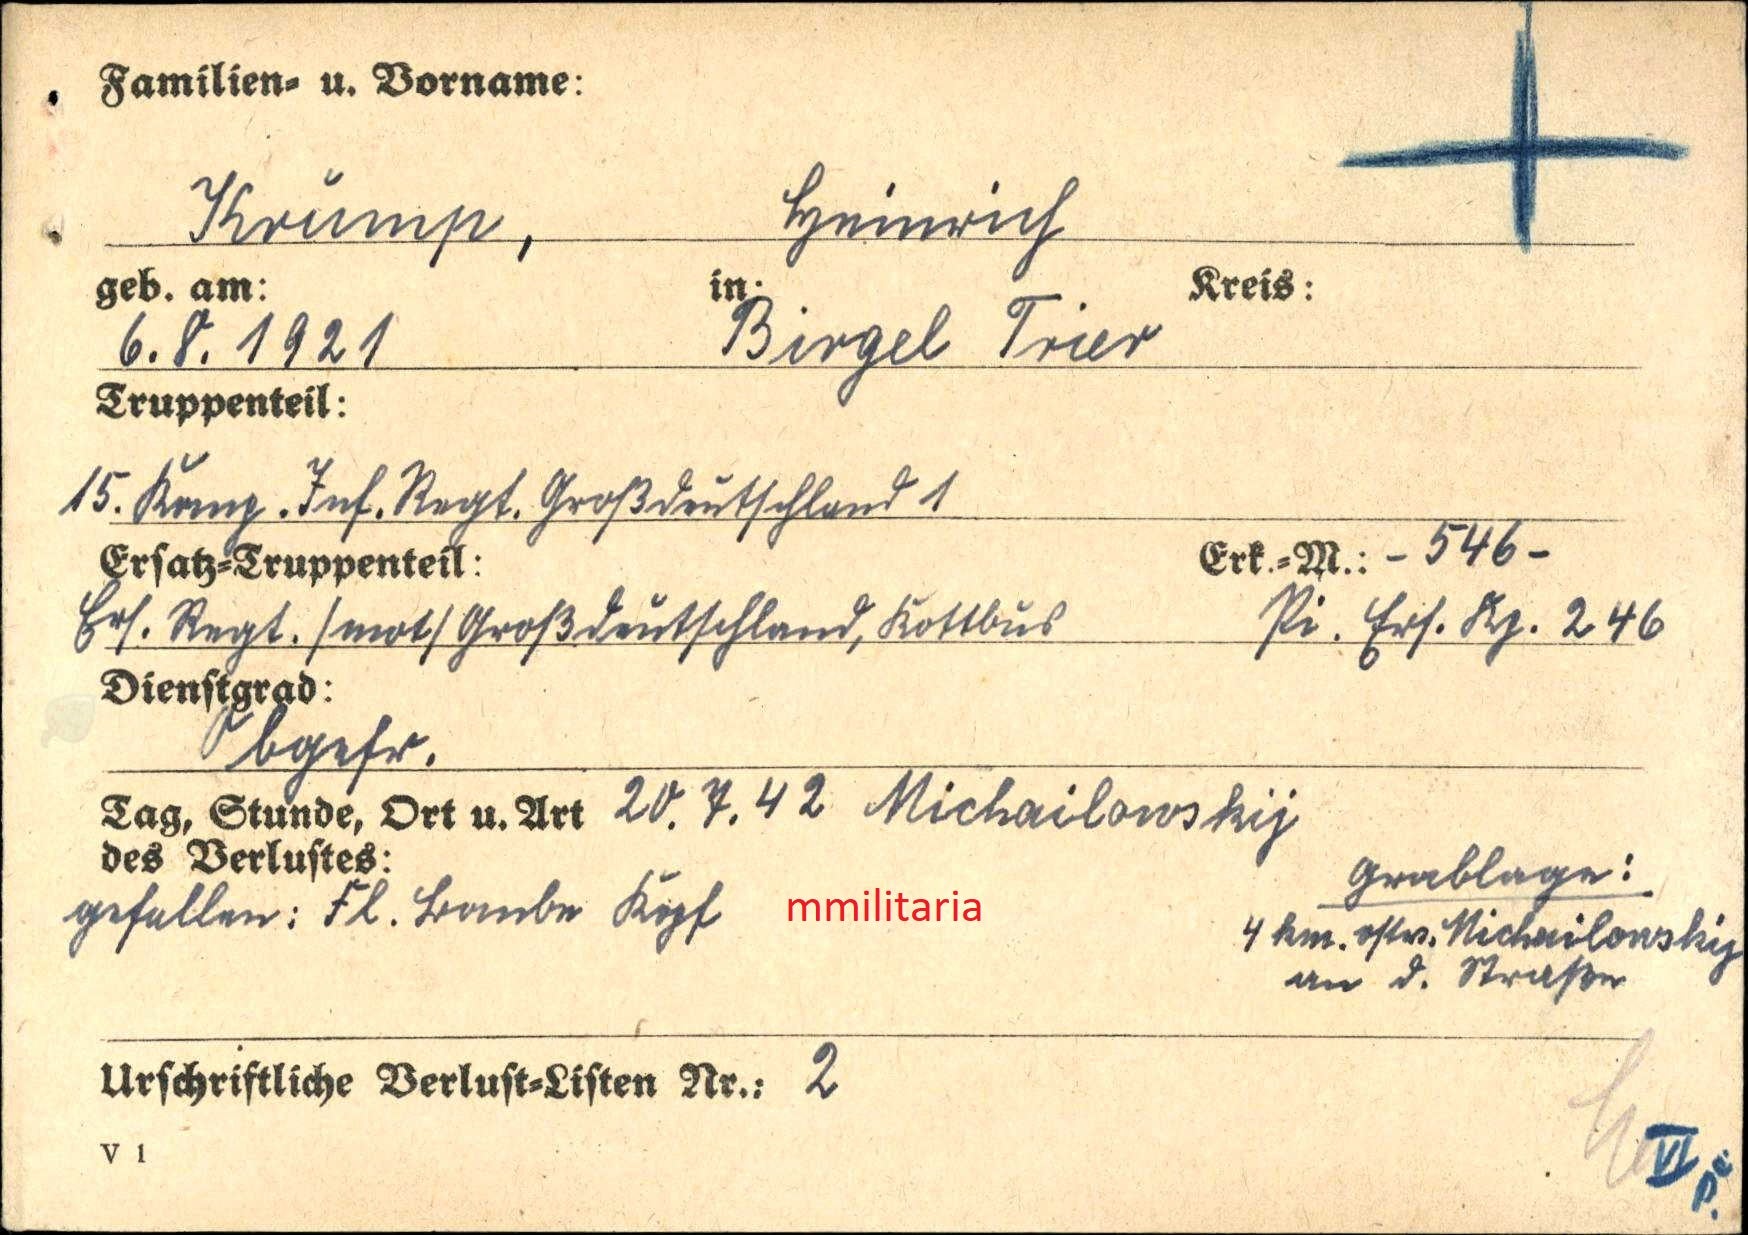 Familien- u. Vorname:
Krump, Heinrich
geb. am: in: Kreis:
6.8.1921 Birgel Trier
Truppenteil:
15. Komp. Inf. Regt. Großdeutschland 1
Ersatz-Truppenteil: Erk.-M.: - 546 -
Ers. Regt. /mot/ Großdeutschland, Kottbus Pi. Ers. Kp. 246
Dienstgrad:
Obgefr.
Tag, Stunde, Ort u. Art 20.7.42 Michailowskij
des Verlustes:
Grablage:
gefallen: Fl. Bombe Kopf mmilitaria
4 km. ostw. Michailowskij
an d. Straße
Urschriftliche Verlust-Listen Nr.: 2
V 1
VI